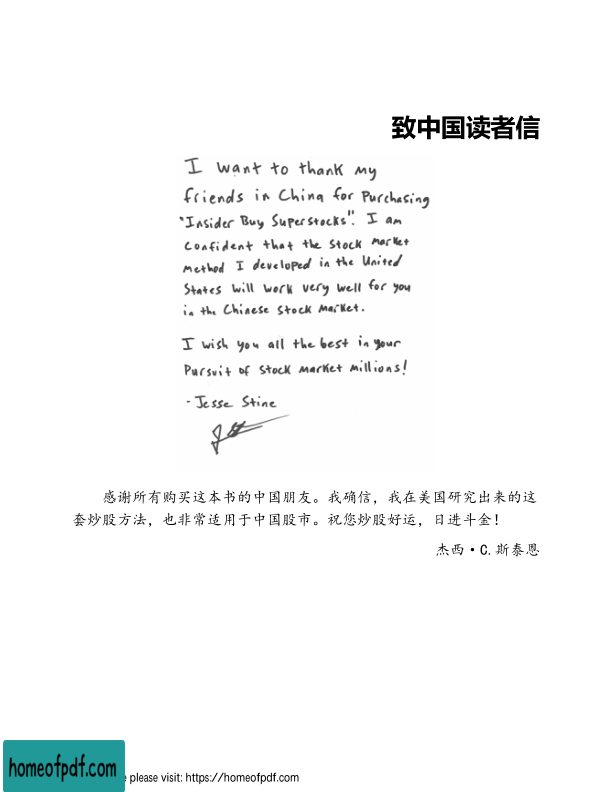 致中国读者信
I want to thank my
friends in China for Purchasing
"Insider Buy Superstocks". I am
confident that the stock market
method I developed in the United
States will work very well for you
in the Chinese stock market.
I wish you all the best in your
Pursuit of stock market millions!
- Jesse Stine
感谢所有购买这本书的中国朋友。我确信，我在美国研究出来的这
套炒股方法，也非常适用于中国股市。祝您炒股好运，日进斗金！
杰西·C.斯泰恩
homeofpdf.com
e please visit: https://homeofpdf.com